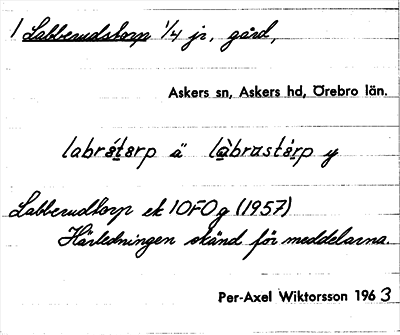 1 Labberudstorp 1/4 jr, gård,
Askers sn, Askers hd, Örebro län.
labrǿtǝrp ä làbrʊstǝ̀rp y
Labberudtorp ek 10F0g (1957)
Härledningen okänd för meddelarna.
Per-Axel Wiktorsson 1963